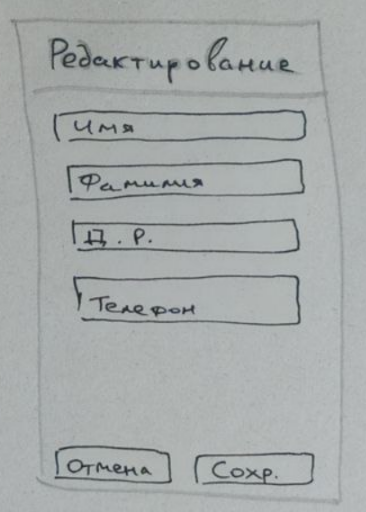 Редактирование
Имя
Фамилия
Д. Р.
Телефон
Отмена
Сохр.